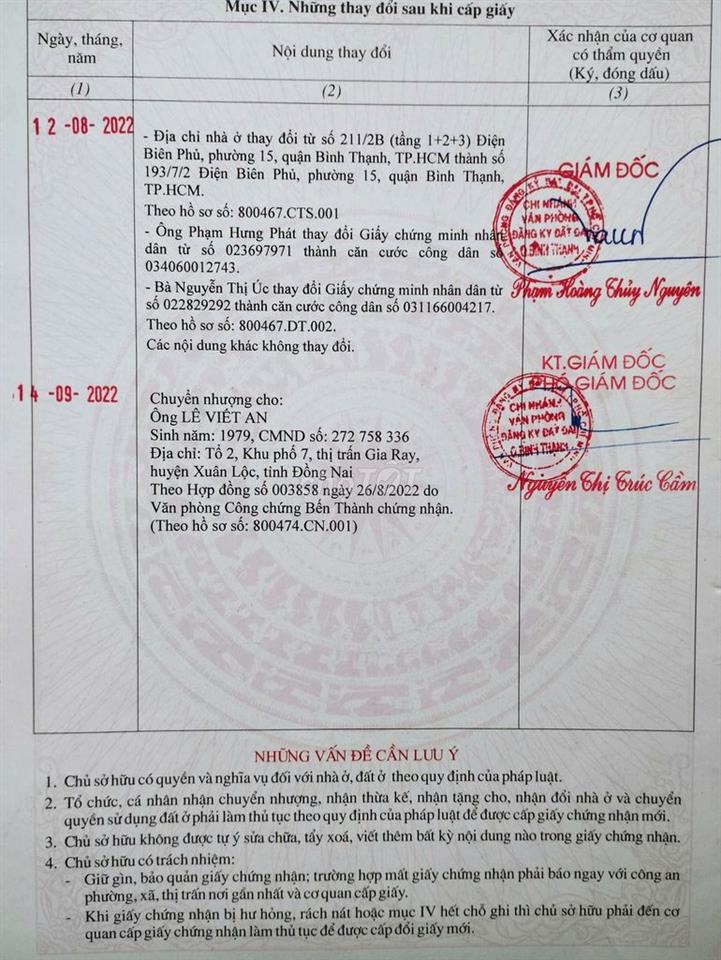 Mục IV. Những thay đổi sau khi cấp giấy
Ngày, tháng, năm
Nội dung thay đổi
Xác nhận của cơ quan có thẩm quyền
(Ký, đóng dấu)
(1)
(2)
(3)
12-08-2022
- Địa chỉ nhà ở thay đổi từ số 211/2B (tầng 1+2+3) Điện
Biên Phủ, phường 15, quận Bình Thạnh, TP.HCM thành số
193/7/2 Điện Biên Phủ, phường 15, quận Bình Thạnh,
TP.HCM.
Theo hồ sơ số: 800467.CTS.001
- Ông Phạm Hưng Phát thay đổi Giấy chứng minh nhân
dân từ số 023697971 thành căn cước công dân số
034060012743.
- Bà Nguyễn Thị Úc thay đổi Giấy chứng minh nhân dân từ
số 022829292 thành căn cước công dân số 031166004217.
Theo hồ sơ số: 800467.DT.002.
Các nội dung khác không thay đổi.
GIÁM ĐỐC
CHI NHÁNH
VĂN PHÒNG
ĐĂNG KÝ ĐẤT ĐAI
Q.BÌNH THẠNH
Phạm Hoàng Thủy Nguyên
14-09-2022
Chuyển nhượng cho:
Ông LÊ VIẾT AN
Sinh năm: 1979, CMND số: 272 758 336
Địa chỉ: Tổ 2, Khu phố 7, thị trấn Gia Ray,
huyện Xuân Lộc, tỉnh Đồng Nai
Theo Hợp đồng số 003858 ngày 26/8/2022 do
Văn phòng Công chứng Bến Thành chứng nhận.
(Theo hồ sơ số: 800474.CN.001)
KT.GIÁM ĐỐC
PHÓ GIÁM ĐỐC
CHI NHÁNH
VĂN PHÒNG
ĐĂNG KÝ ĐẤT ĐAI
Q.BÌNH THẠNH
Nguyễn Thị Trúc Cầm
NHỮNG VẤN ĐỀ CẦN LƯU Ý
1. Chủ sở hữu có quyền và nghĩa vụ đối với nhà ở, đất ở theo quy định của pháp luật.
2. Tổ chức, cá nhân nhận chuyển nhượng, nhận thừa kế, nhận tặng cho, nhận đổi nhà ở và chuyển
quyền sử dụng đất ở phải làm thủ tục theo quy định của pháp luật để được cấp giấy chứng nhận mới.
3. Chủ sở hữu không được tự ý sửa chữa, tẩy xoá, viết thêm bất kỳ nội dung nào trong giấy chứng nhận.
4. Chủ sở hữu có trách nhiệm:
- Giữ gìn, bảo quản giấy chứng nhận; trường hợp mất giấy chứng nhận phải báo ngay với công an
phường, xã, thị trấn nơi gần nhất và cơ quan cấp giấy.
- Khi giấy chứng nhận bị hư hỏng, rách nát hoặc mục IV hết chỗ ghi thì chủ sở hữu phải đến cơ
quan cấp giấy chứng nhận làm thủ tục để được cấp đổi giấy mới.